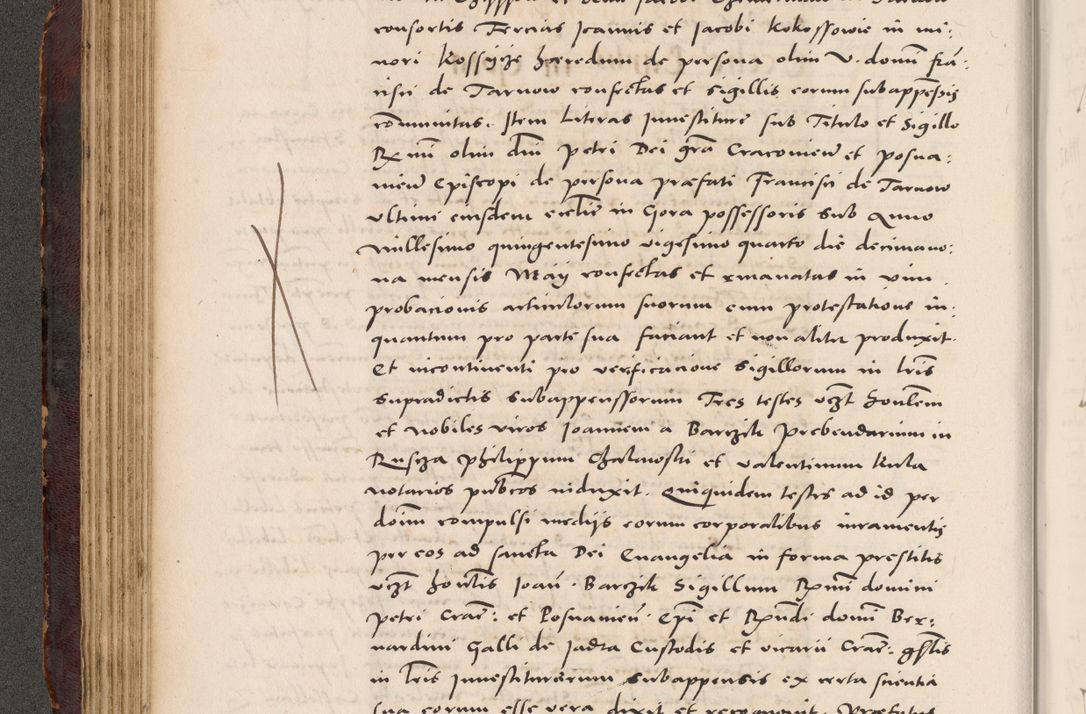 consortis Tercias Joannis et Jacobi Kokossowie in mi:
nori Kossyże haeredum de persona olim V. domi Fran:
cisci de Tarnow confectas et sigillis eorum subappensis
communitas. Item Literas Investiture sub Titulo et Sigillo
Rx̃mi olim dñi Petri Dei grã Cracovien̄ et posna:
nien̄ Episcopi de persona praefati Francisci de Tarnow
ultimi eiusdem ecclie in Gora possessoris sub Anno
millesimo quingentesimo vigesimo quarto die decimano:
na mensis Maij confectas et emanatas in vim
probacionis articulorum suorum cum protestatione in:
quantum pro parte sua faciant et non aliter produxit.
Et incontinenti pro verificacione Sigillorum in lr̃is
supradictis subappenssorum Tres testes vz̃t honlem
et nobiles viros Joannem a Barczik prebendarium in
Ruscza Philippum Chalawski et valentinum Kula
notarios pub̃cos induxit. Quiquidem testes ad id per
doim compulsi medijs eorum corporalibus iuramentis
per eos ad sancta Dei Evangelia in forma prestitis
vz̃t hon̄lis Joañ. Barczik Sigillum Rx̃mi domini
Petri Crac̃: et Posnanieñ. Ep̃i et Rx̃ndi domi Ber:
nardini Galli de Jadra Custodis et vicarii Crac̃: gñlis
in lr̃is Investiturarum subappensis ex certa scientia
sua eorum esse vera dixit et recognovit. Praefatus